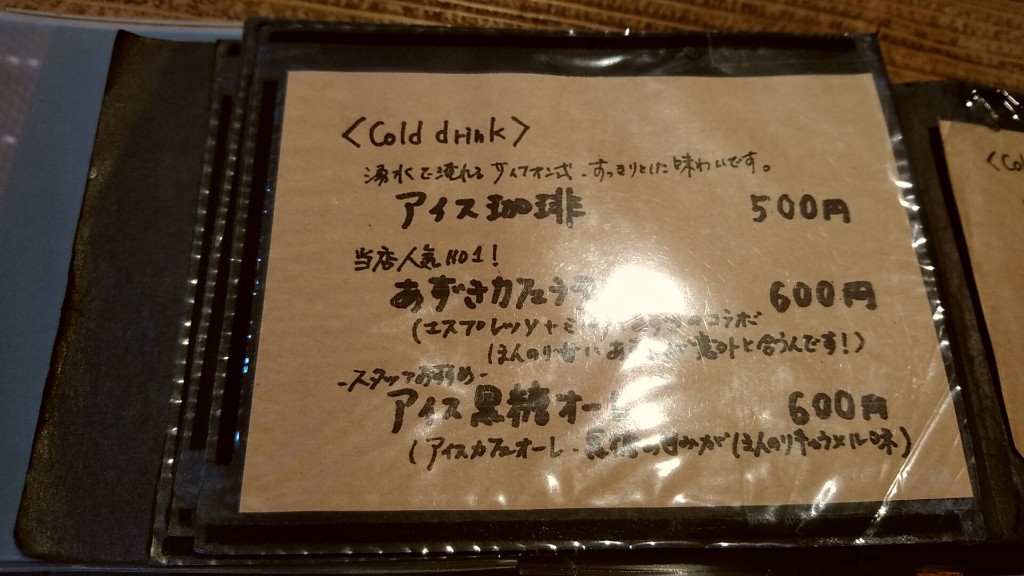 <Cold drink>
湧水で淹れるサイフォン式、すっきりとした味わいです。
アイス珈琲 500円
当店人気NO1!
あずきカフェラテ 600円
(エスプレッソ+ミルク コラボ
ほんのり甘い あ が意外と合うんです!)
-スタッフお薦め-
アイス黒糖オーレ 600円
(アイスカフェオーレ ほんのりキャラメル味)
<Col